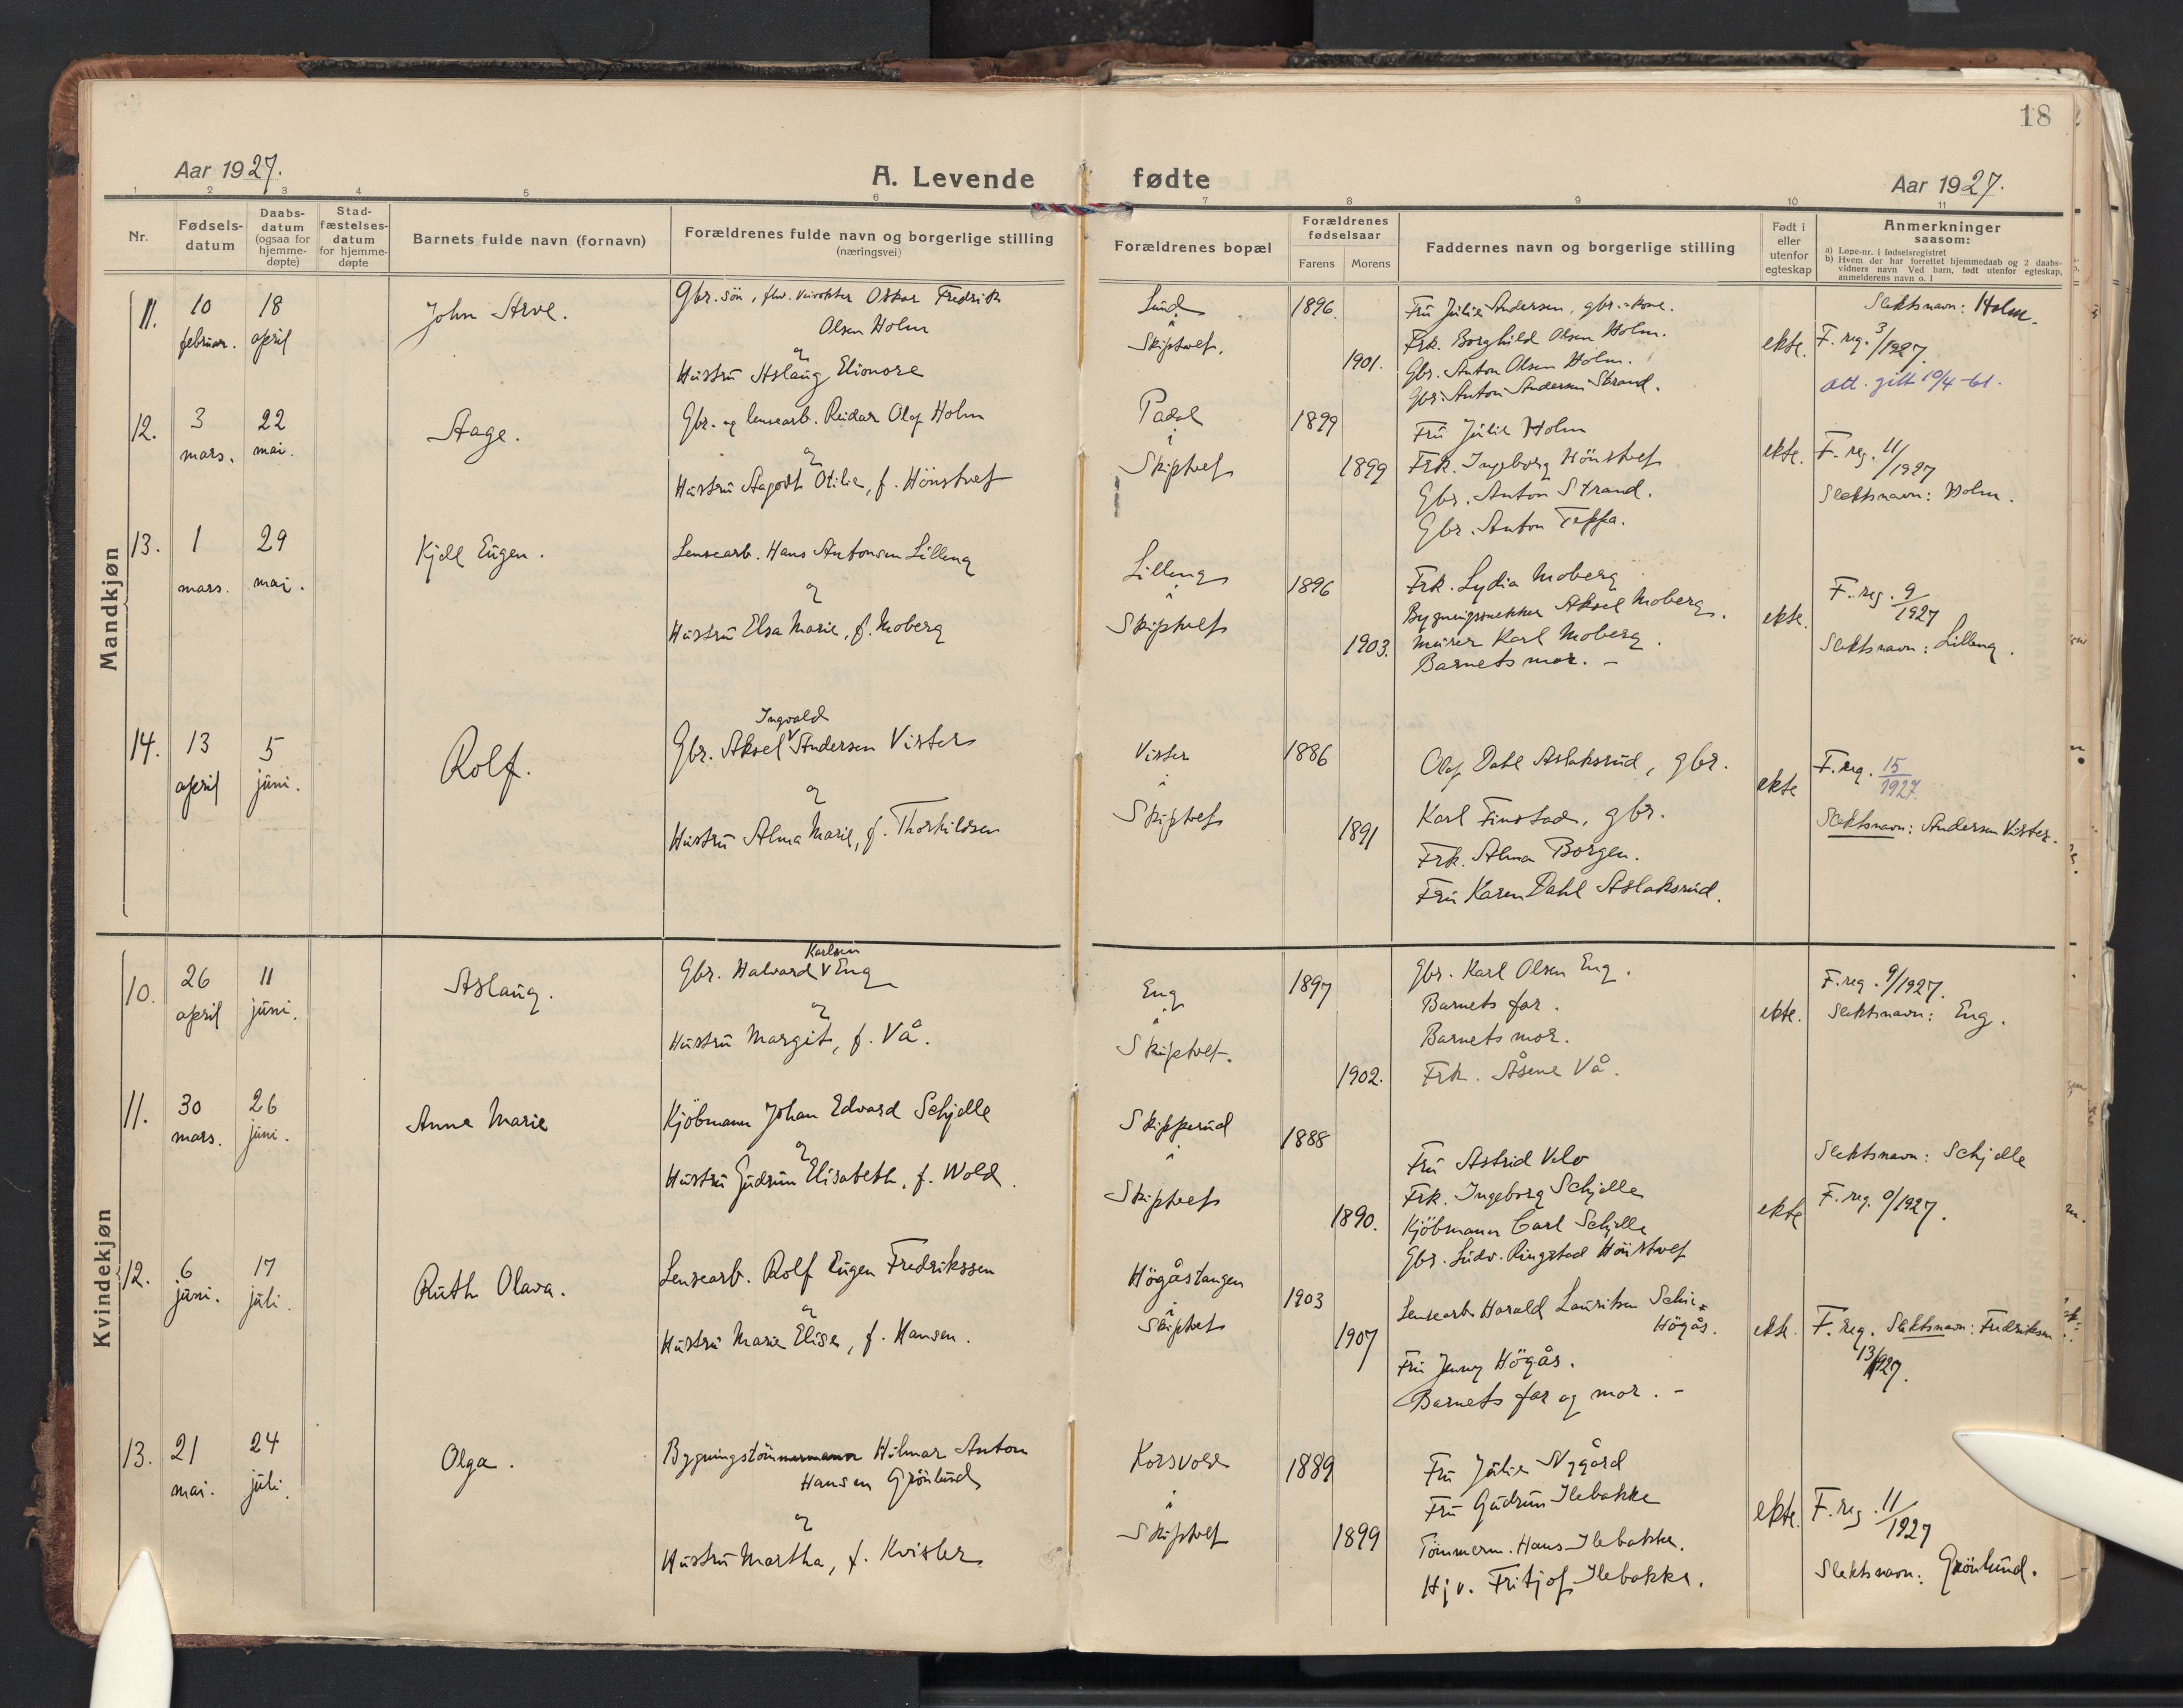 18
Aar 1927.
A. Levende fødte
Aar 1927.
1 2 3 4 5 6 7 8 9 10 11
Nr.
Fødsels-
datum
Daabs-
datum
(ogsaa for
hjemme-
døpte)
Stad-
fæstelses-
datum
for hjemme-
døpte
Barnets fulde navn (fornavn)
Forældrenes fulde navn og borgerlige stilling
(næringsvei)
Forældrenes bopæl
Forældrenes
fødselsaar
Farens Morens
Faddernes navn og borgerlige stilling
Født i
eller
utenfor
egteskap
Anmerkninger
saasom:
a) Løpe-nr. i fødselsregistret
b) Hvem der har forrettet hjemmedaab og 2 daabs-
vidners navn Ved barn, født utenfor egteskap,
anmelderens navn o. l
Mandkjøn
11.
10
februar.
18
april
John Arve.
Gbr. søn, Oskar Fredrik
Olsen Holm
og
Hustru Aslaug Elionore
Lund
i
Skiptvet.
1896.
1901.
Fru Julie Andersen, gbr.-kone.
Frk. Borghild Olsen Holm.
Gbr. Anton Olsen Holm.
Gbr. Anton Andersen Strand.
ekte.
Slektsnavn: Holm.
F. reg. 3/1927.
att. gift 10/4-61.
12.
3
mars.
22
mai.
Aage.
Gbr. og lensearb. Reidar Olaf Holm
og
Hustru Aagodt Otilie, f. Hönstvet
i
Skiptvet
1899
1899
Fru Julie Holm
Frk. Ingeborg Hönstvet
Gbr. Anton Strand.
Gbr. Anton Teppa.
ekte.
F. reg. 11/1927
Slektsnavn: Holm.
13.
1
mars.
29
mai.
Kjell Eugen.
Lensearb. Hans Antonsen Lilleng
og
Hustru Elsa Marie, f. Moberg
Lilleng
i
Skiptvet
1896
1903.
Frk. Lydia Moberg
Bygningssnekker Aksel Moberg.
Murer Karl Moberg.
Barnets mor. -
ekte.
F. reg. 9/1927
Slektsnavn: Lilleng.
14.
13
april
5
juni.
Rolf.
Ingvald
Gbr. Aksel v Andersen Vister
og
Hustru Alma Marie, f. Thorkildsen
Vister
i
Skiptvet
1886
1891
Olaf Dahl Aslaksrud, gbr.
Karl Finstad, gbr.
Frk. Alma Borgen.
Fru Karen Dahl Aslaksrud.
ekte
F. reg. 15/1927.
Slektsnavn: Andersen Vister.
Kvindekjøn
10.
26
april
11
juni.
Aslaug.
Karlsen
Gbr. Halvard v Eng
og
Hustru Margit, f. Vå.
Eng
i
Skiptvet.
1897
1902.
Gbr. Karl Olsen Eng.
Barnets far.
Barnets mor.
Frk. Åsene Vå.
ekte.
F. reg. 9/1927.
Slektsnavn: Eng.
11.
30
mars.
26
juni.
Anne Marie
Kjöbmann Johan Edvard Schjelle
og
Hustru Gudrun Elisabeth, f. Wold.
Skipperud
i
Skiptvet
1888
1890.
Fru Astrid Velo
Frk. Ingeborg Schjelle
Kjöbmann Carl Schjelle
Gbr. Ludv. Ringstad Hönstvet
ekte
Slektsnavn: Schjelle
F. reg. /1927.
12.
6
juni.
17
juli.
Ruth Olava.
Lensearb. Rolf Eugen Fredrikssen
og
Hustru Marie Elise, f. Hansen.
Högåstangen
i
Skiptvet
1903
1907
Lensearb. Harald Lauritsen
Högås.
Fru Jenny Högås.
Barnets far og mor. -
ekte.
F. reg. Slektsnavn: Fredriksen
13/1927.
13.
21
mai.
24
juli.
Olga.
Bygningstömmermann Hilmar Anton
Hansen Grönlund
og
Hustru Martha, f. Kvisler
Korsvold
i
Skiptvet
1889
1899
Fru Julie Nygård
Fru Gudrun Ilebakke
Tömmerm. Hans Ilebakke.
Hjv. Fritjof Ilebakke.
ekte.
F. reg. 11/1927
Slektsnavn: Grönlund.